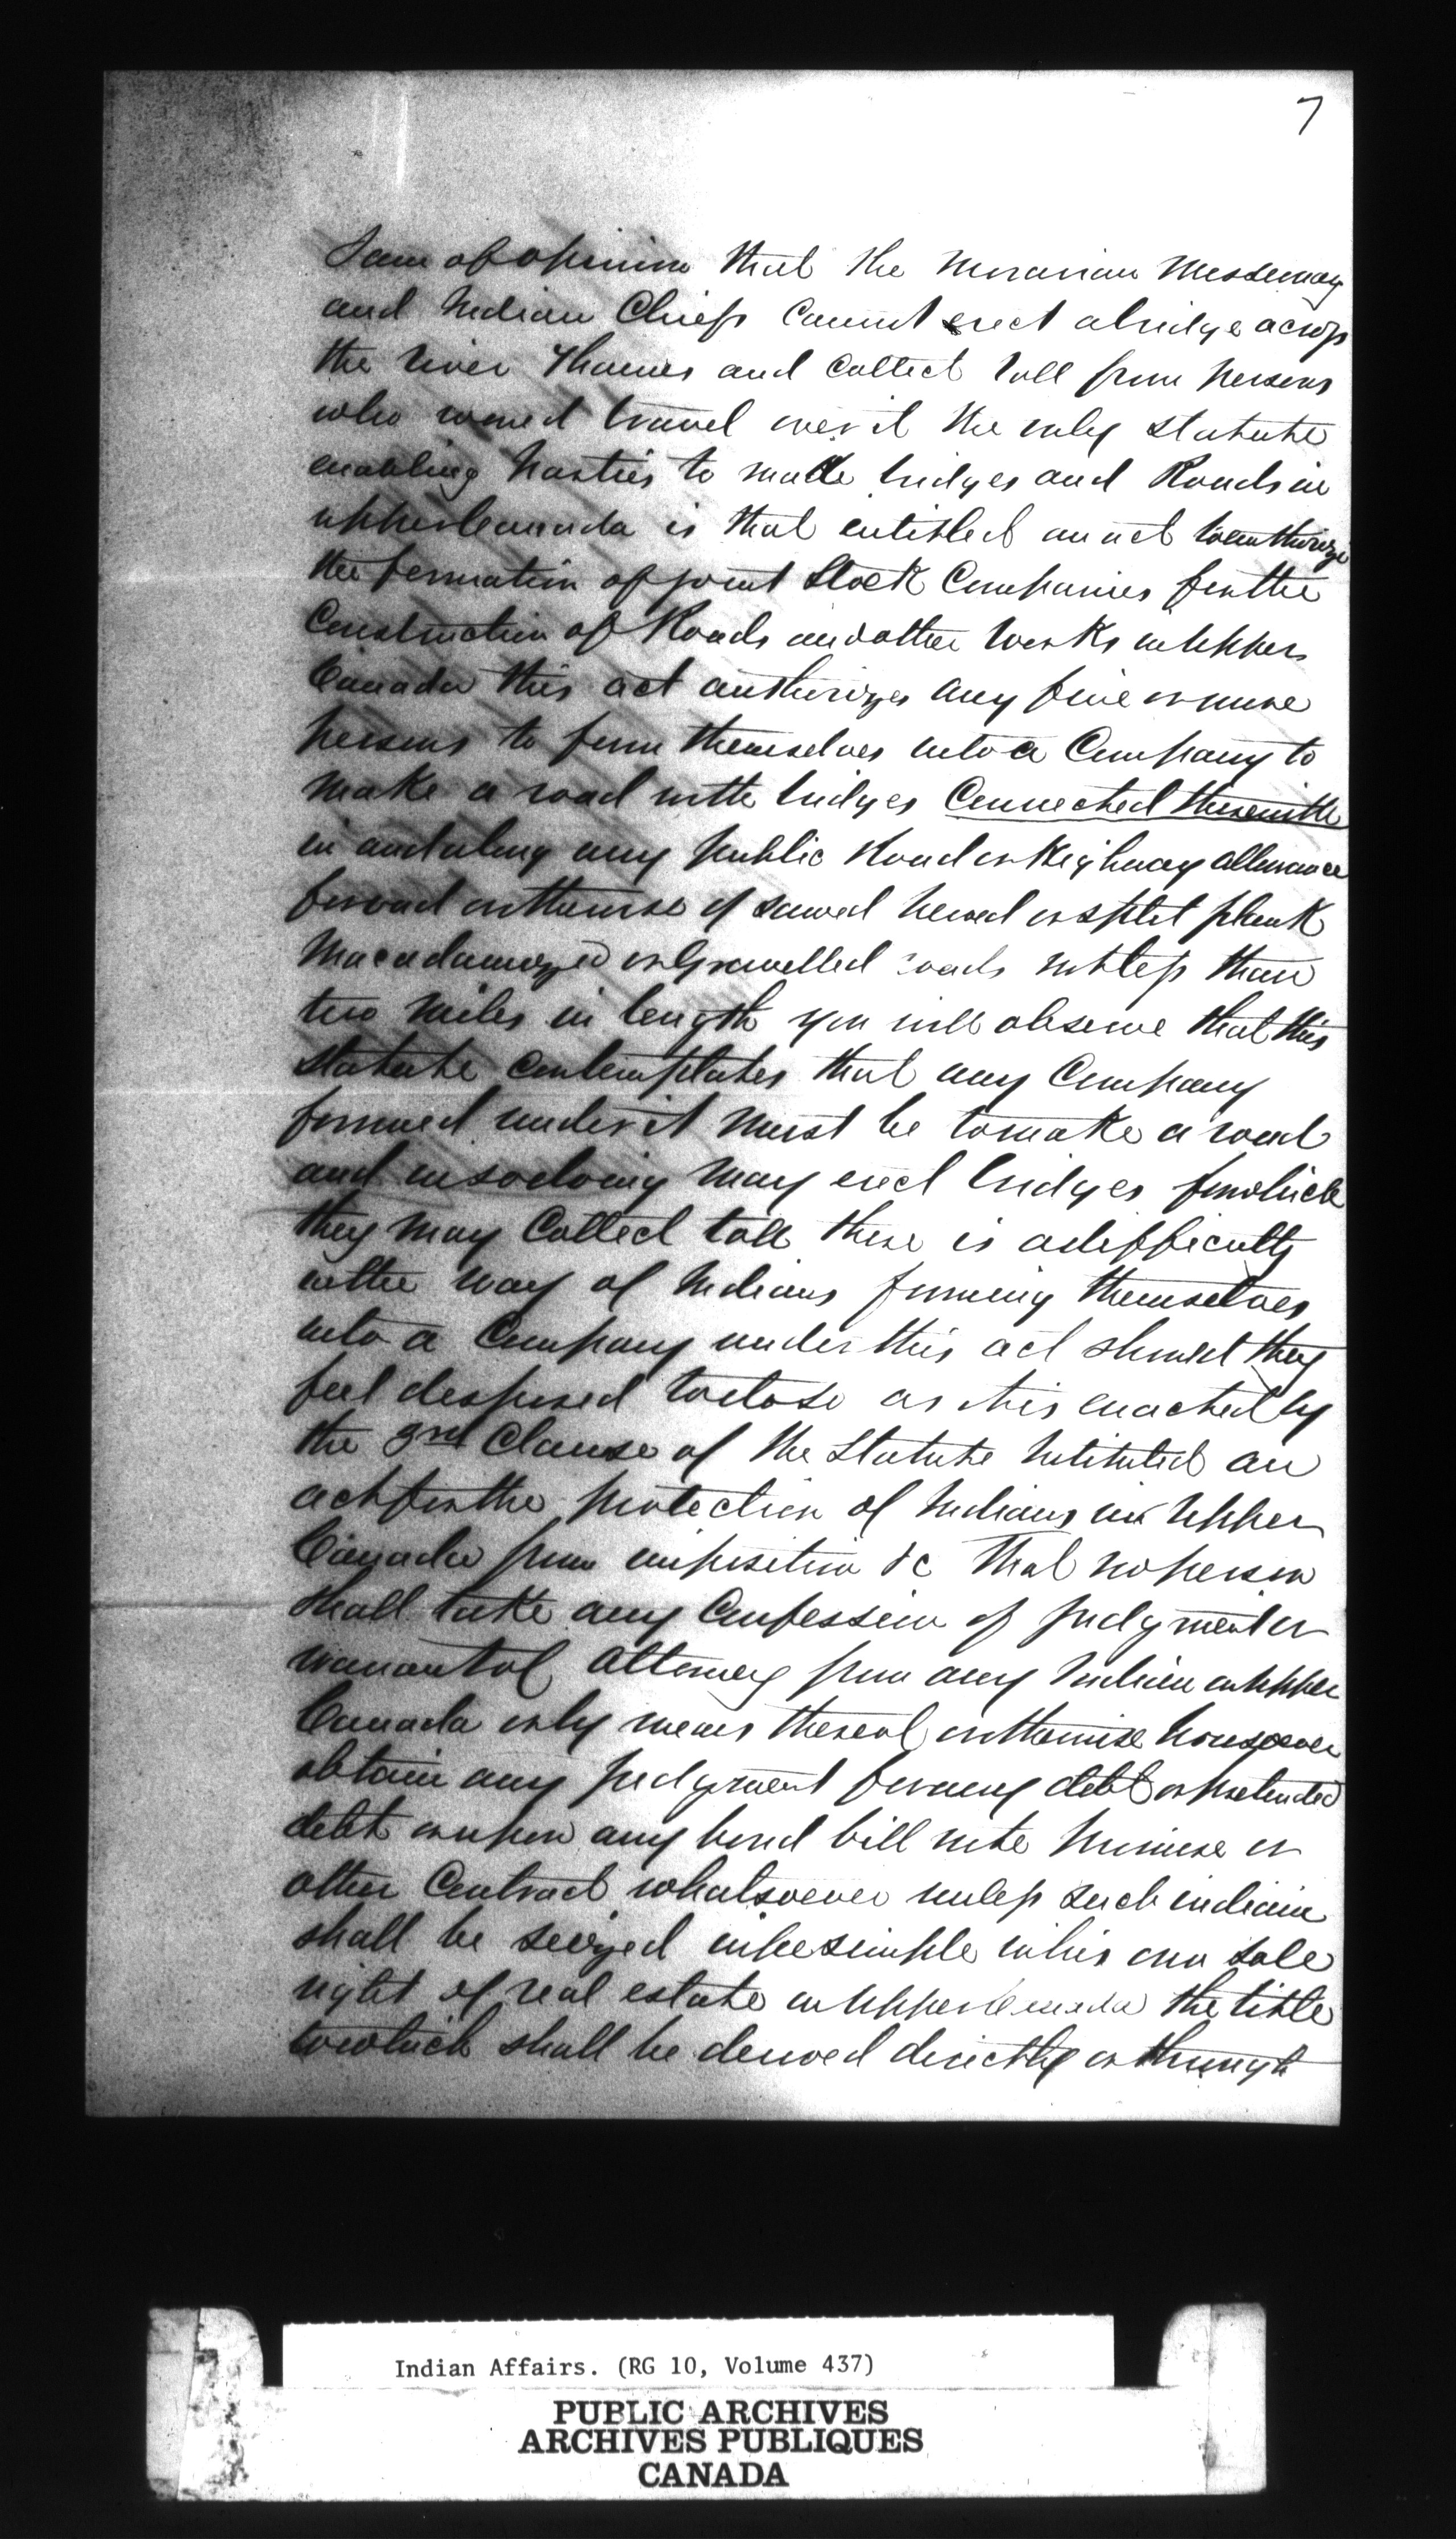 7
I am of opinion that the Moravian Missionary
and Indian Chiefs Cannot erect a bridge across
the river Thames and Collect toll from persons
who would travel over it the only statute
enabling parties to make bridges and Roads in
upper Canada is that entitled an act to authorize
the formation of joint Stock Companies for the
Construction of Roads and other Works in Upper
Canada this act authorizes any five or more
persons to form themselves into a Company to
make a road with bridges Connected therewith
in and along any public Road or Highway allowance
for road or otherwise of sawed hewed or split plank
Macadamized or Gravelled roads not less than
two miles in length you will observe that this
statute contemplates that any Company
formed under it must be to make a road
and in so doing may erect bridges for which
they may Collect toll there is a difficulty
in the way of Indians forming themselves
into a Company under this act should they
feel disposed to do so as it is enacted by
the 3rd Clause of the Statute Intituted an
act for the protection of Indians in Upper
Canada from imposition &c That no person
shall take any Confession of Judgment or
warrant of Attorney from any Indian in Upper
Canada or by means thereof or otherwise howsoever
obtain any Judgment for any debt or pretended
debt or upon any bond bill note promise or
other Contract whatsoever unless such indian
shall be seized in fee simple in his own sole
right of real estate in Upper Canada the title
to which shall be derived directly or through
Indian Affairs. (RG 10, Volume 437)
PUBLIC ARCHIVES
ARCHIVES PUBLIQUES
CANADA